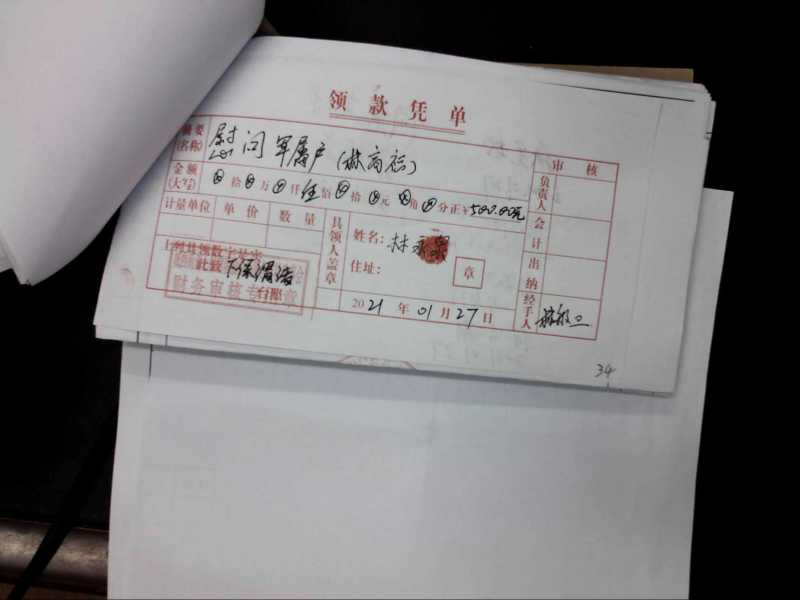 领款凭单
摘要(名称) 慰问军属户(林高福)
审核
金额(大写) ⊗拾⊗万⊗仟伍佰⊗拾⊗元⊗角⊗分正¥500.00元
负责人
计量单位 单价 数量
具领人盖章 姓名:林永
会计
上列款项数字核实
住址: 章
出纳
此致
财务审核专 章
台照
2021年01月27日
经手人
34